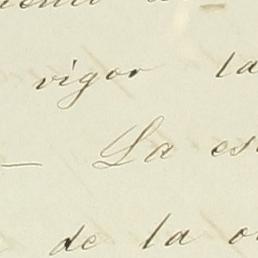 vigor la
— La es
de la o